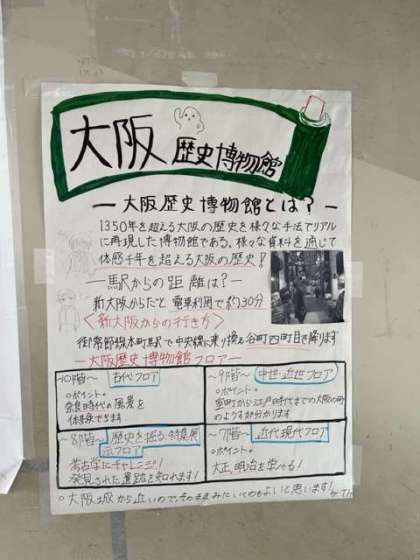 大阪 歴史博物館
ー大阪歴史博物館とは?ー
1350年を超える大阪の歴史を様々な手法でリアル
に再現した博物館である。様々な資料を通じて
体感千年を超える大阪の歴史!
ー馬駅からの距離は?ー
新大阪からだと 電車利用で約30分
〈新大阪からの行き方〉
御堂筋線本町駅で中央線に乗り換え谷町四町目で降ります
ー大阪歴史博物館フロアー
〜10階〜 古代フロア
○ポイント○
奈良時代の風景を
体験できます
〜9階〜 中世・近世フロア
○ポイント○
室町から江戸時代までの大阪の町
のようすが分かります
〜8階〜 歴史を掘る、特集展
示フロア
考古学にチャレンジ!
発見された遺跡を知れます!
〜7階〜 近代現代フロア
○ポイント○
大正、明治を学べる!
○大阪城から近いのでそのままみにいくのもよいと思います!